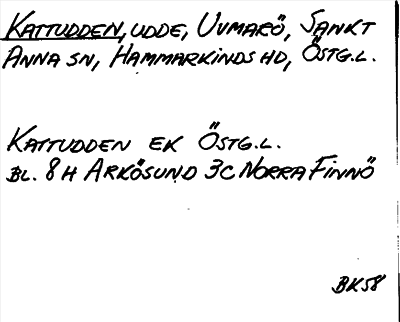 KATTUDDEN, UDDE, UVMARÖ, SANKT
ANNA SN, HAMMARKINDS HD, ÖSTG.L.
KATTUDDEN EK ÖSTG.L.
BL. 8H ARKÖSUND 3C NORRA FINNÖ
BK58